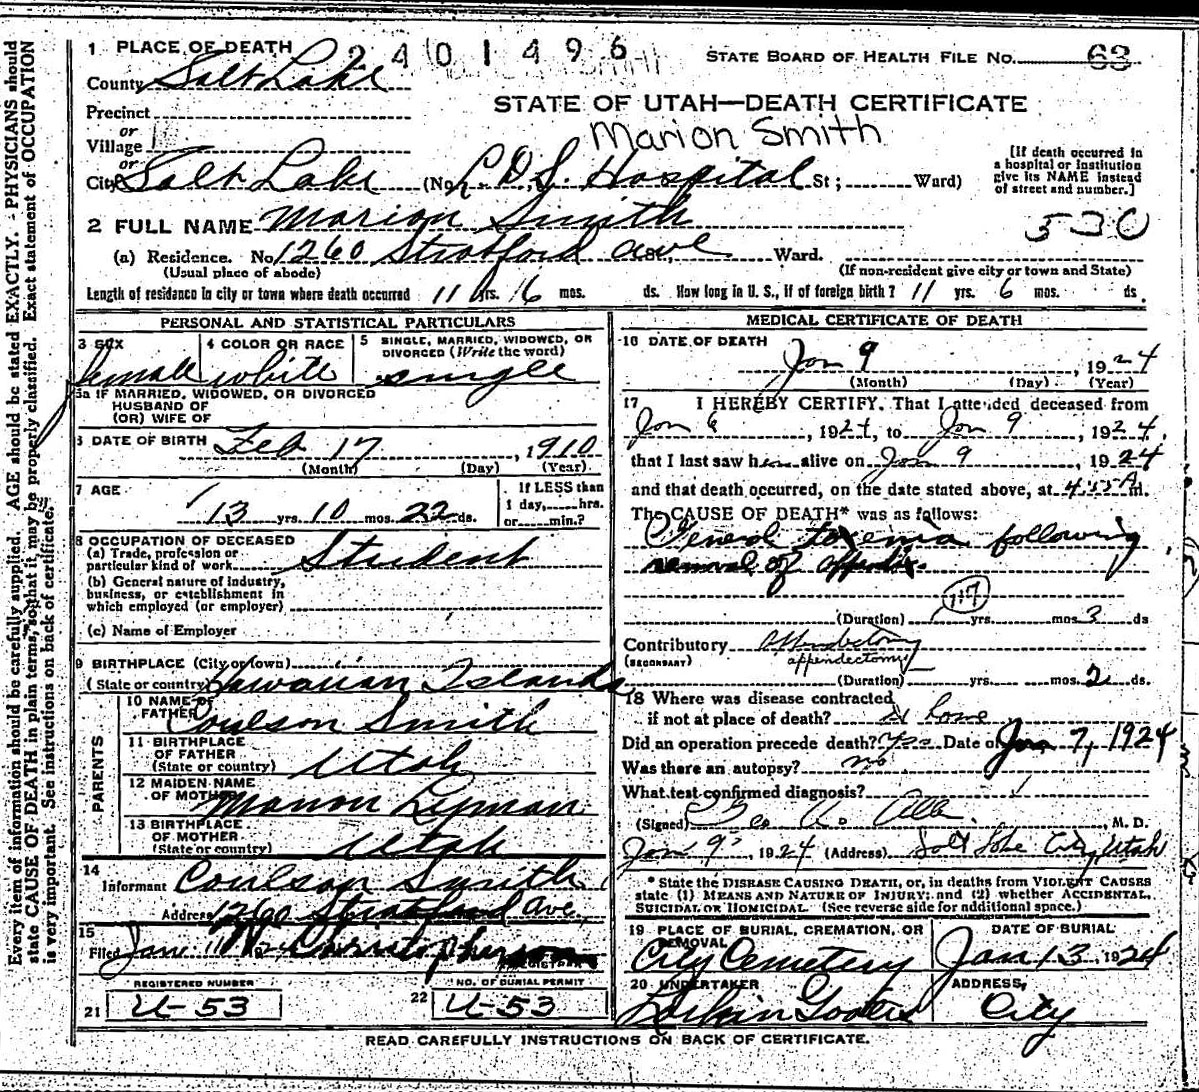 Every item of information should be carefully supplied. AGE should be stated EXACTLY. - PHYSICIANS should
state CAUSE OF DEATH in plain terms, so that it may be properly classified. Exact statement of OCCUPATION
is very important. See instructions on back of certificate.
1 PLACE OF DEATH 2401496 STATE BOARD OF HEALTH FILE No. 63
County Salt Lake
STATE OF UTAH—DEATH CERTIFICATE
Precinct
or
Village
Marion Smith
or
City Salt Lake (No. L.D.S. Hospital St; Ward)
[If death occurred in
a hospital or institution
give its NAME instead
of street and number.]
2 FULL NAME Marion Smith
530
(a) Residence. No. 1260 Stratford Ave St. Ward.
(Usual place of abode) (If non-resident give city or town and State)
Length of residence in city or town where death occurred 11 yrs. 6 mos. ds. How long in U. S., if of foreign birth? 11 yrs. 6 mos. ds.
PERSONAL AND STATISTICAL PARTICULARS
3 SEX female
4 COLOR OR RACE white
5 SINGLE, MARRIED, WIDOWED, OR
DIVORCED (Write the word)
single
5a IF MARRIED, WIDOWED, OR DIVORCED
HUSBAND OF
(OR) WIFE OF
6 DATE OF BIRTH Feb 17, 1910
(Month) (Day) (Year)
7 AGE 13 yrs. 10 mos. 22 ds.
If LESS than
1 day, hrs.
or min.?
8 OCCUPATION OF DECEASED
(a) Trade, profession or
particular kind of work Student
(b) General nature of industry,
business, or establishment in
which employed (or employer)
(c) Name of Employer
9 BIRTHPLACE (City or town)
(State or country) Hawaiian Islands
PARENTS
10 NAME OF
FATHER Coulson Smith
11 BIRTHPLACE
OF FATHER
(State or country) Utah
12 MAIDEN NAME
OF MOTHER Marion Lyman
13 BIRTHPLACE
OF MOTHER
(State or country) Utah
14
Informant Coulson Smith
Address 1260 Stratford Ave
15
Filed Jan 11 Christopherson
REGISTRAR
REGISTERED NUMBER
21 U-53
NO. OF BURIAL PERMIT
22 U-53
MEDICAL CERTIFICATE OF DEATH
16 DATE OF DEATH
Jan 9, 1924
(Month) (Day) (Year)
17 I HEREBY CERTIFY, That I attended deceased from
Jan 6, 1924, to Jan 9, 1924,
that I last saw her alive on Jan 9, 1924
and that death occurred, on the date stated above, at 4:55 A m.
The CAUSE OF DEATH* was as follows:
General toxemia following
removal of appendix.
117
(Duration) yrs. mos. 3 ds
Contributory appendectomy
(SECONDARY) appendectomy
(Duration) yrs. mos. 2 ds.
18 Where was disease contracted
if not at place of death? At home
Did an operation precede death? Yes Date of Jan 7, 1924
Was there an autopsy? no
What test confirmed diagnosis?
(Signed) Geo. A. Allen, M. D.
Jan 9, 1924 (Address) Salt Lake City, Utah
* State the DISEASE CAUSING DEATH, or, in deaths from VIOLENT CAUSES
state (1) MEANS AND NATURE OF INJURY; and (2) whether ACCIDENTAL,
SUICIDAL OR HOMICIDAL. (See reverse side for additional space.)
19 PLACE OF BURIAL, CREMATION, OR
REMOVAL
City Cemetery
DATE OF BURIAL
Jan 13, 1924
20 UNDERTAKER
ADDRESS,
City
READ CAREFULLY INSTRUCTIONS ON BACK OF CERTIFICATE.